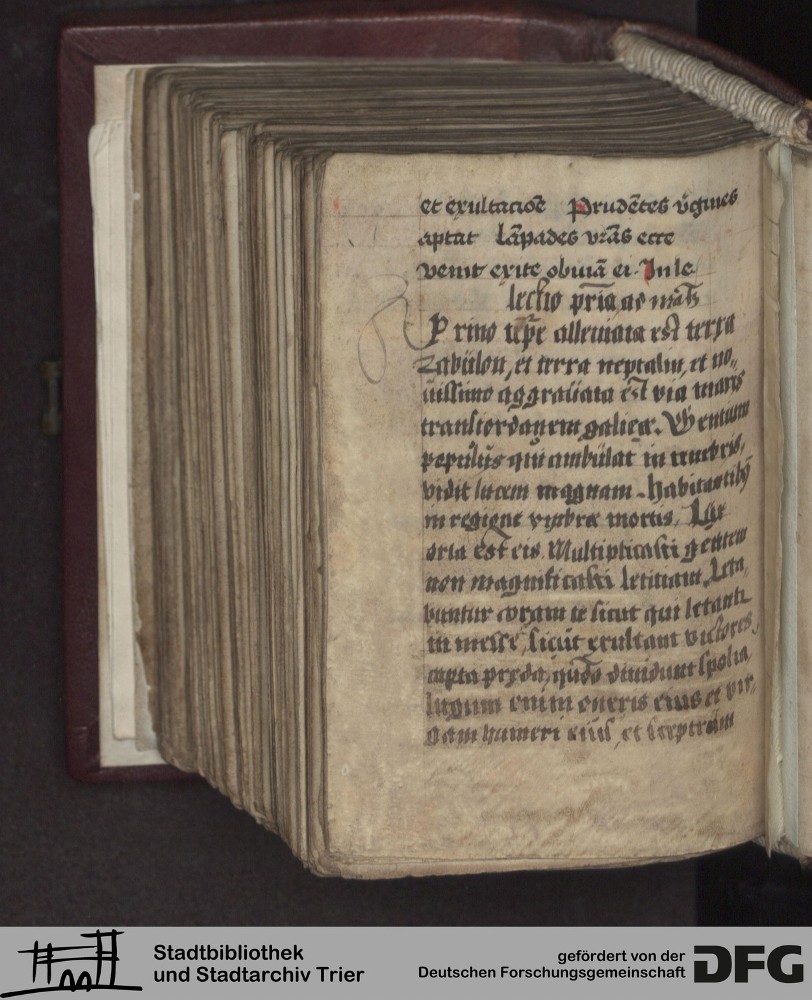 et exultacioē Prudētes v̄gines
aptat lāpades vr̄as ecce
venit exite obuiā ei. In le
lectio prīa ad mat̄
Primo tēpr̄e alleuiata est terra
zabulon, et terra neptalim, et no,,
uissimo aggrauata est via maris
transiordanem galiee. Gentium
populus qui ambulat in tenebris,
vidit lucem magnam. habitantibꝫ
in regione vmbre mortis, Lux
orta est eis. Multiplicasti gentem
non magnificasti letitiam. Leta,
buntur coram te sicut qui letant
in messe, sicut exultant victores
capta preda, qn̄do diuidunt spolia
Iugum enim oneris eius et vir,,
gam humeri eius, et sceptrum
Stadtbibliothek
und Stadtarchiv Trier
gefördert von der
Deutschen Forschungsgemeinschaft
DFG